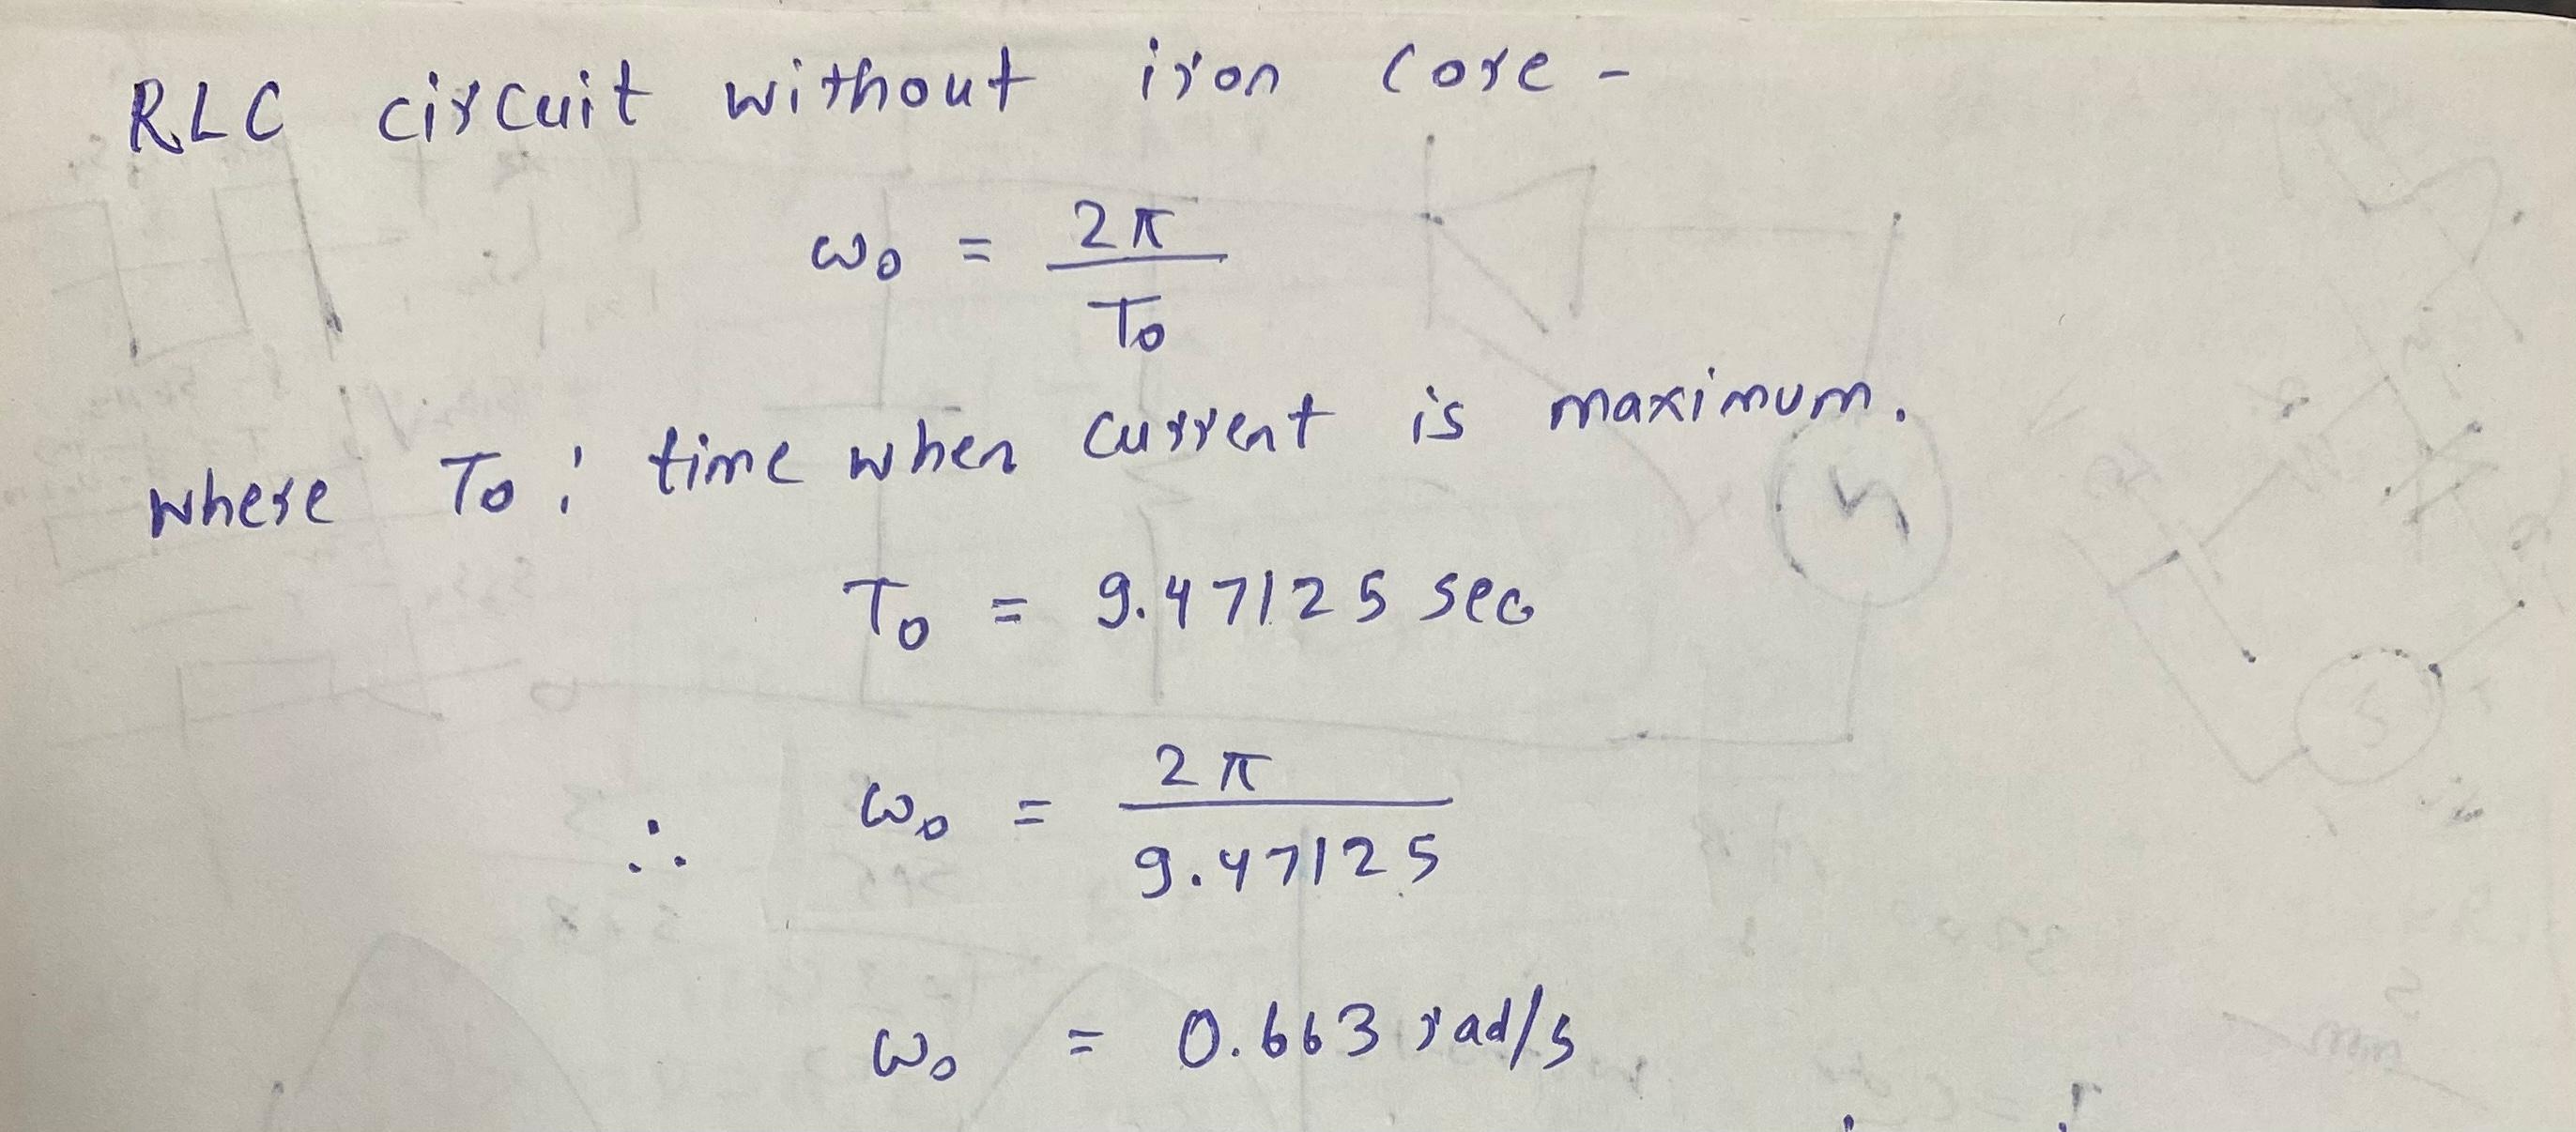 RLC circuit without iron core -
ω₀ = 2π / T₀
where T₀ : time when current is maximum.
T₀ = 9.47125 sec
∴ ω₀ = 2π / 9.47125
ω₀ = 0.663 rad/s